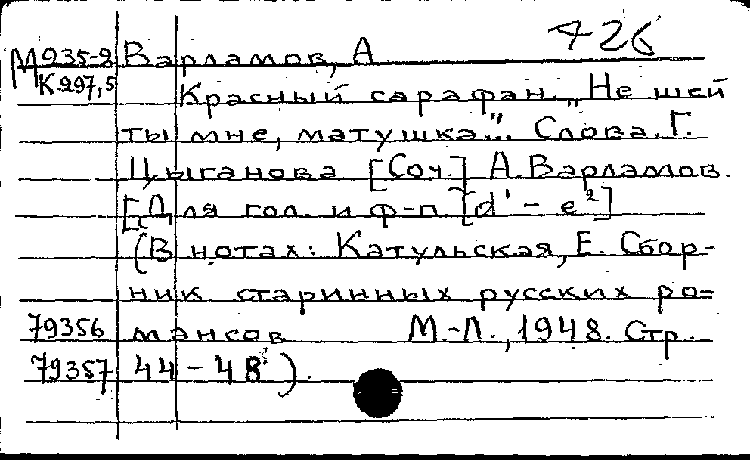 426
М 935-8 Варламов, А
К 297,5 Красный сарафан. „Не шей
ты мне, матушка..." Слова. Г.
Цыганова [Соч.] А. Варламов.
[Для гол. и ф-п.] [d¹ - e²]
(В нотах: Катульская, Е. Сбор-
ник старинных русских ро=
79356 мансов М.-Л., 1948. Стр.
79357 44 - 48).